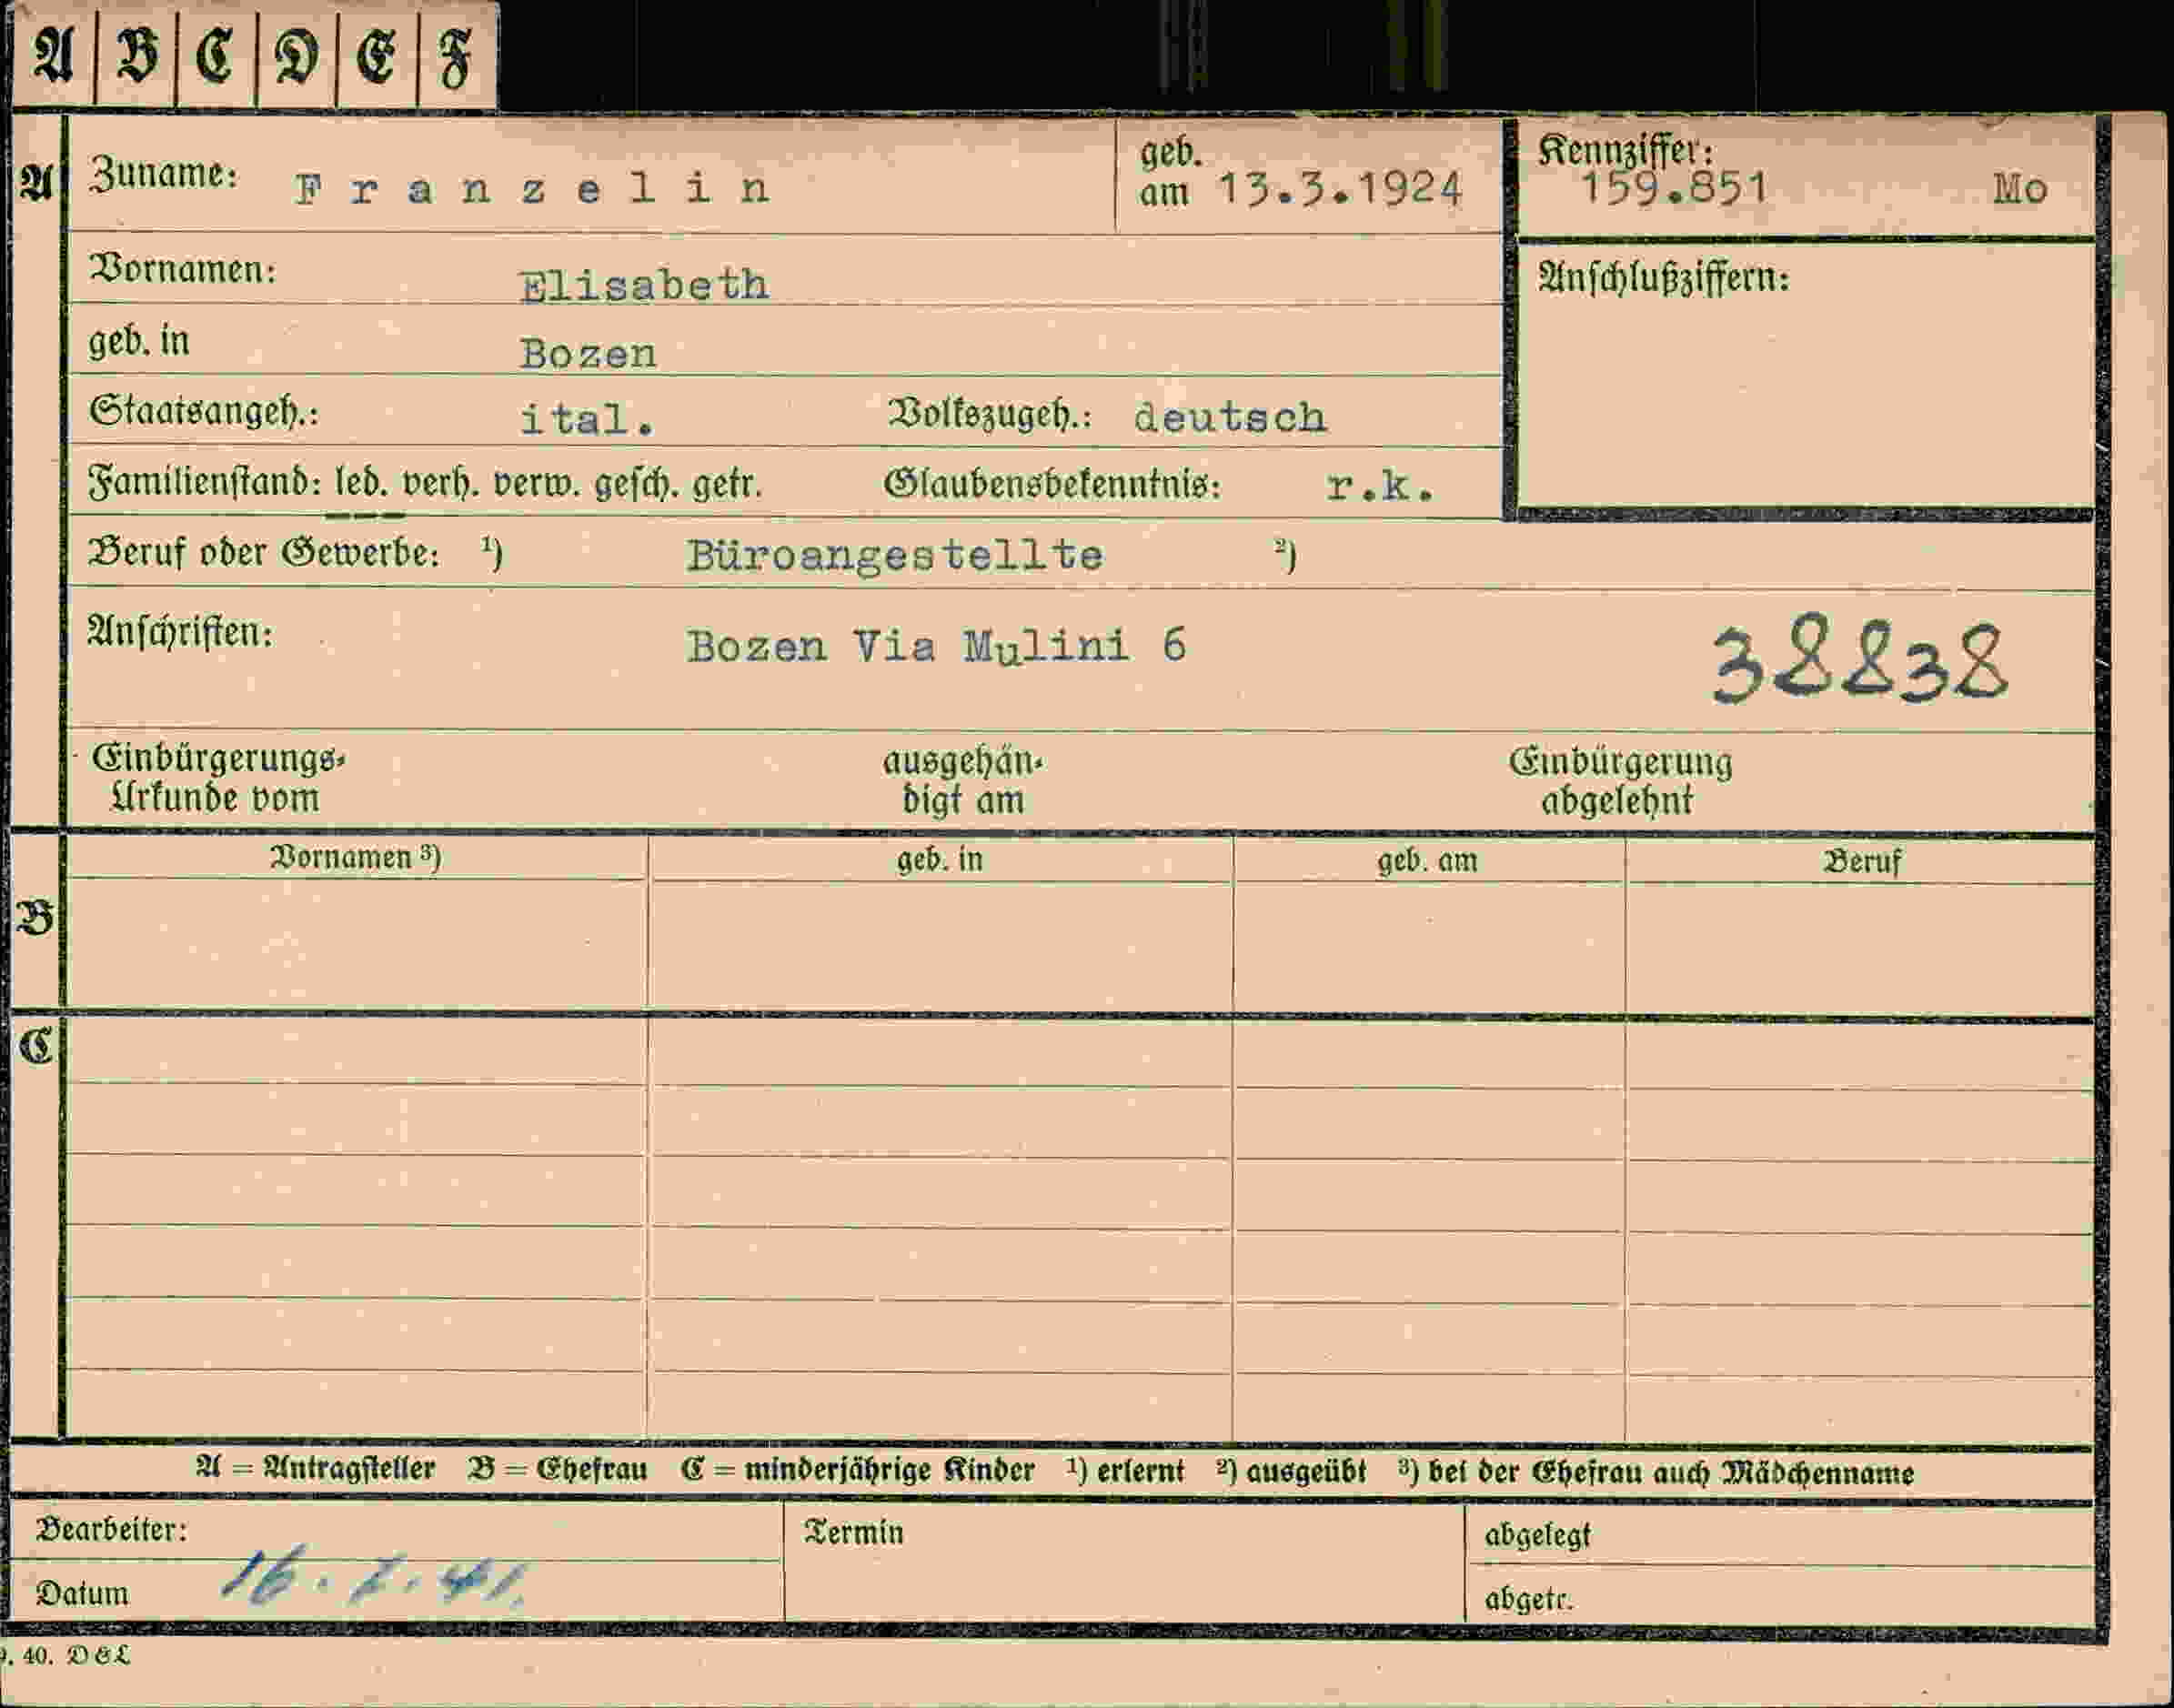 A B C D E F
A Zuname: Franzelin geb. am 13.3.1924 Kennziffer: 159.851 Mo
Vornamen: Elisabeth Anschlußziffern:
geb. in Bozen
Staatsangeh.: ital. Volkszugeh.: deutsch
Familienstand: led. verh. verw. gesch. getr. Glaubensbekenntnis: r.k.
Beruf oder Gewerbe: 1) Büroangestellte 2)
Anschriften: Bozen Via Mulini 6 38838
Einbürgerungs- ausgehän- Einbürgerung
Urkunde vom digt am abgelehnt
Vornamen 3) geb. in geb. am Beruf
B
C
A = Antragsteller B = Ehefrau C = minderjährige Kinder 1) erlernt 2) ausgeübt 3) bei der Ehefrau auch Mädchenname
Bearbeiter: Termin abgelegt
Datum abgetr.
40. D&L